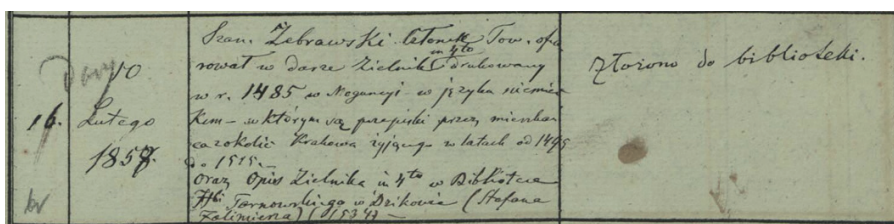 Dary
16.
10
Lutego
1858.
Szan. Żebrawski członek Tow. ofia
rował w darze Zielnik in 4to drukowany
w r. 1485 w Moguncyi w języku niemiec
kim – w którym są przepiski przez mieszkań
ca okolic Krakowa żyjącego w latach od 1495
do 1515. –
oraz Opis Zielnika in 4to w Bibliotece
Tarnowskiego w Dzikowie (Stefana
Falimierza) (1534) –
Złożono do biblioteki.